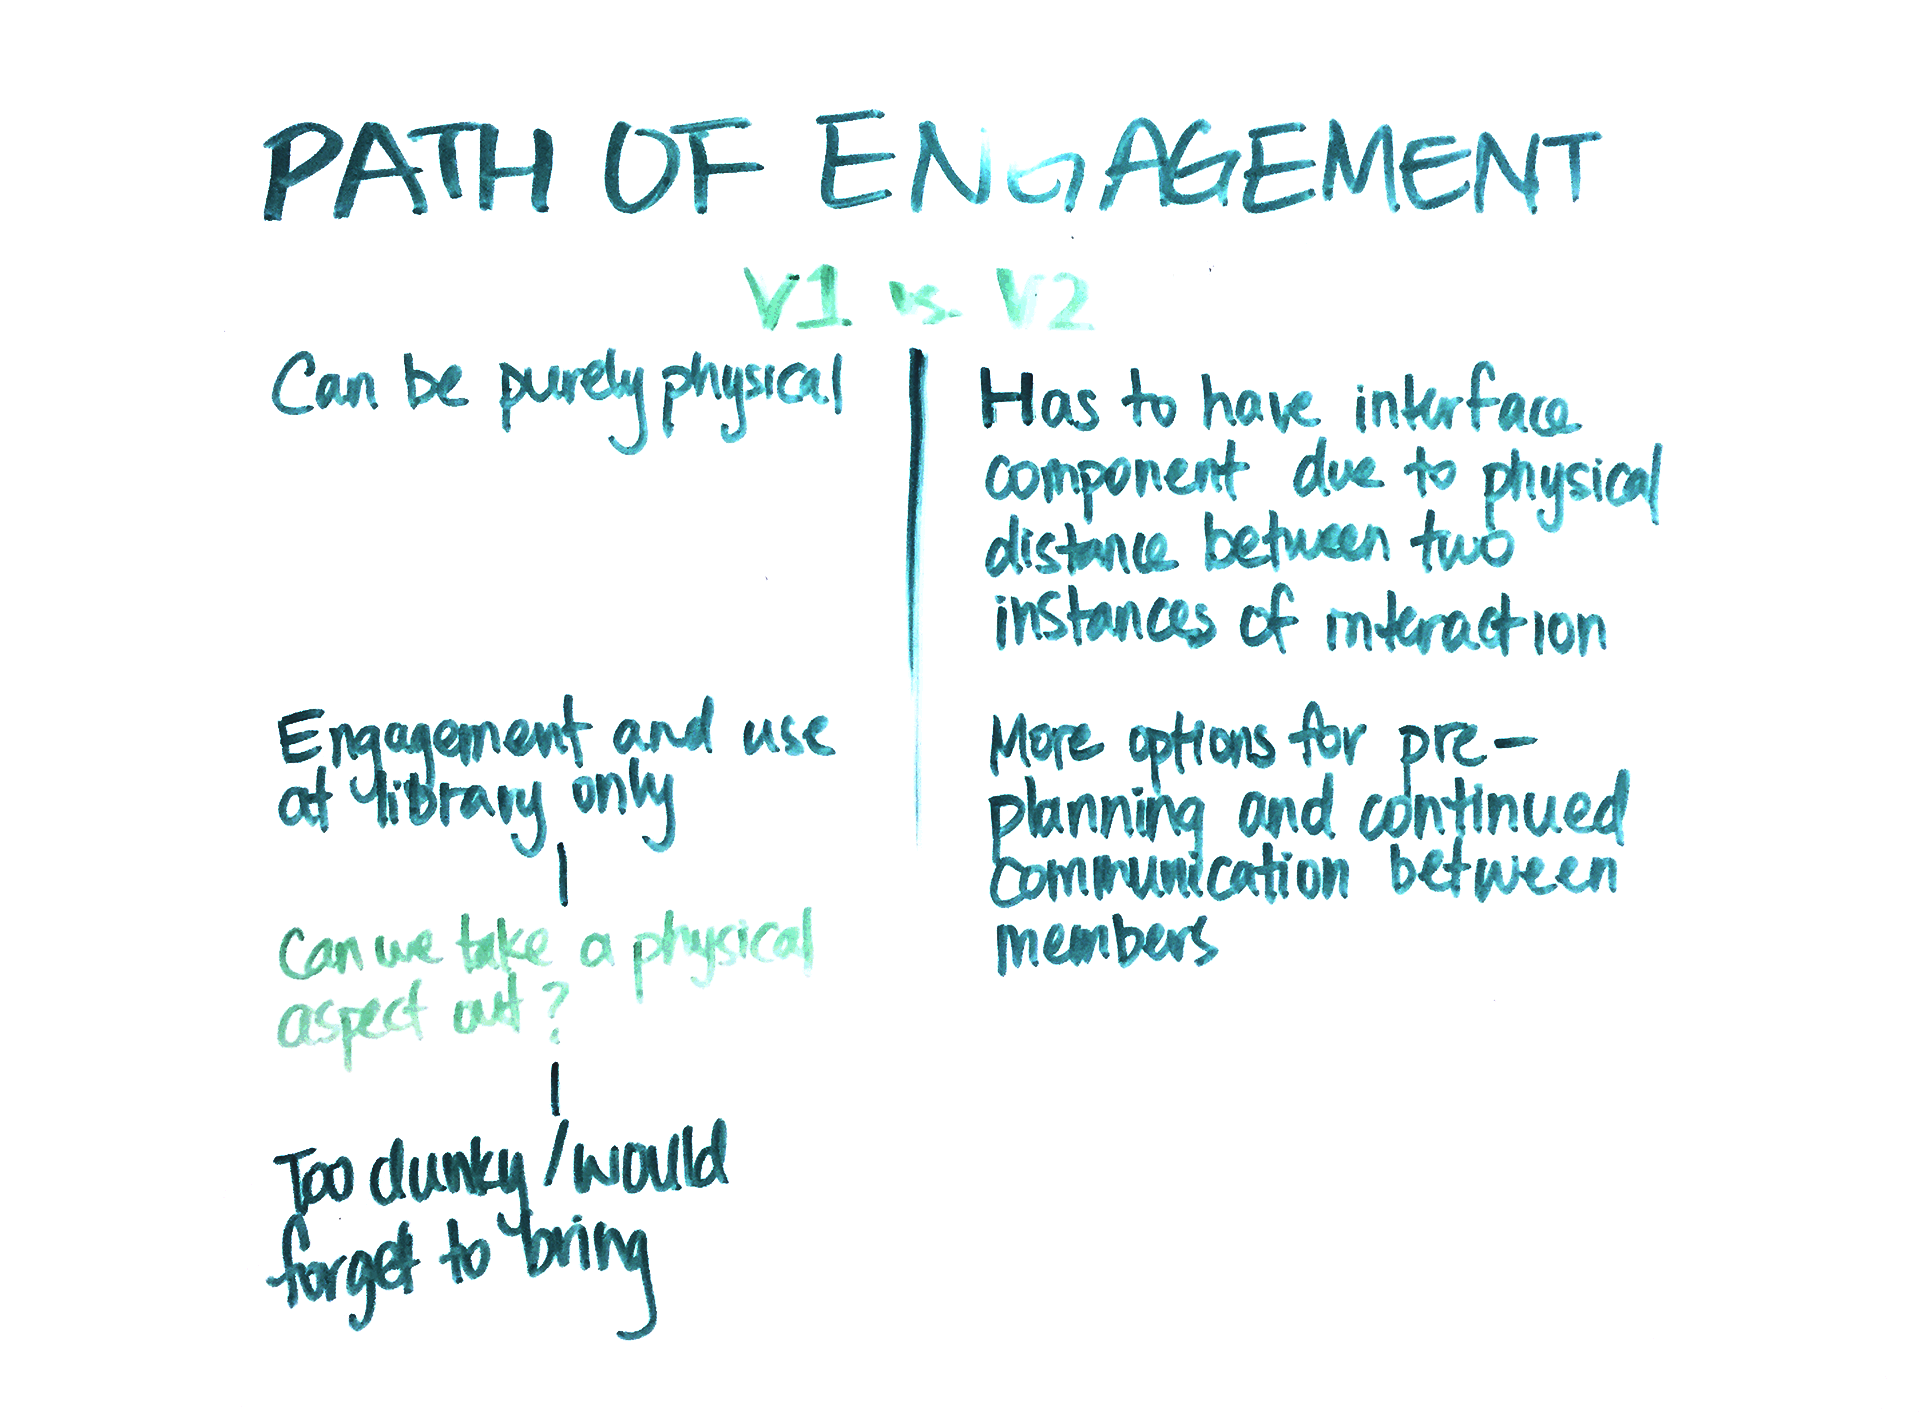 PATH OF ENGAGEMENT
V1 vs. V2
Can be purely physical
Engagement and use
at library only
Can we take a physical
aspect out?
Too clunky / would
forget to bring
Has to have interface
component due to physical
distance between two
instances of interaction
More options for pre-
planning and continued
communication between
members